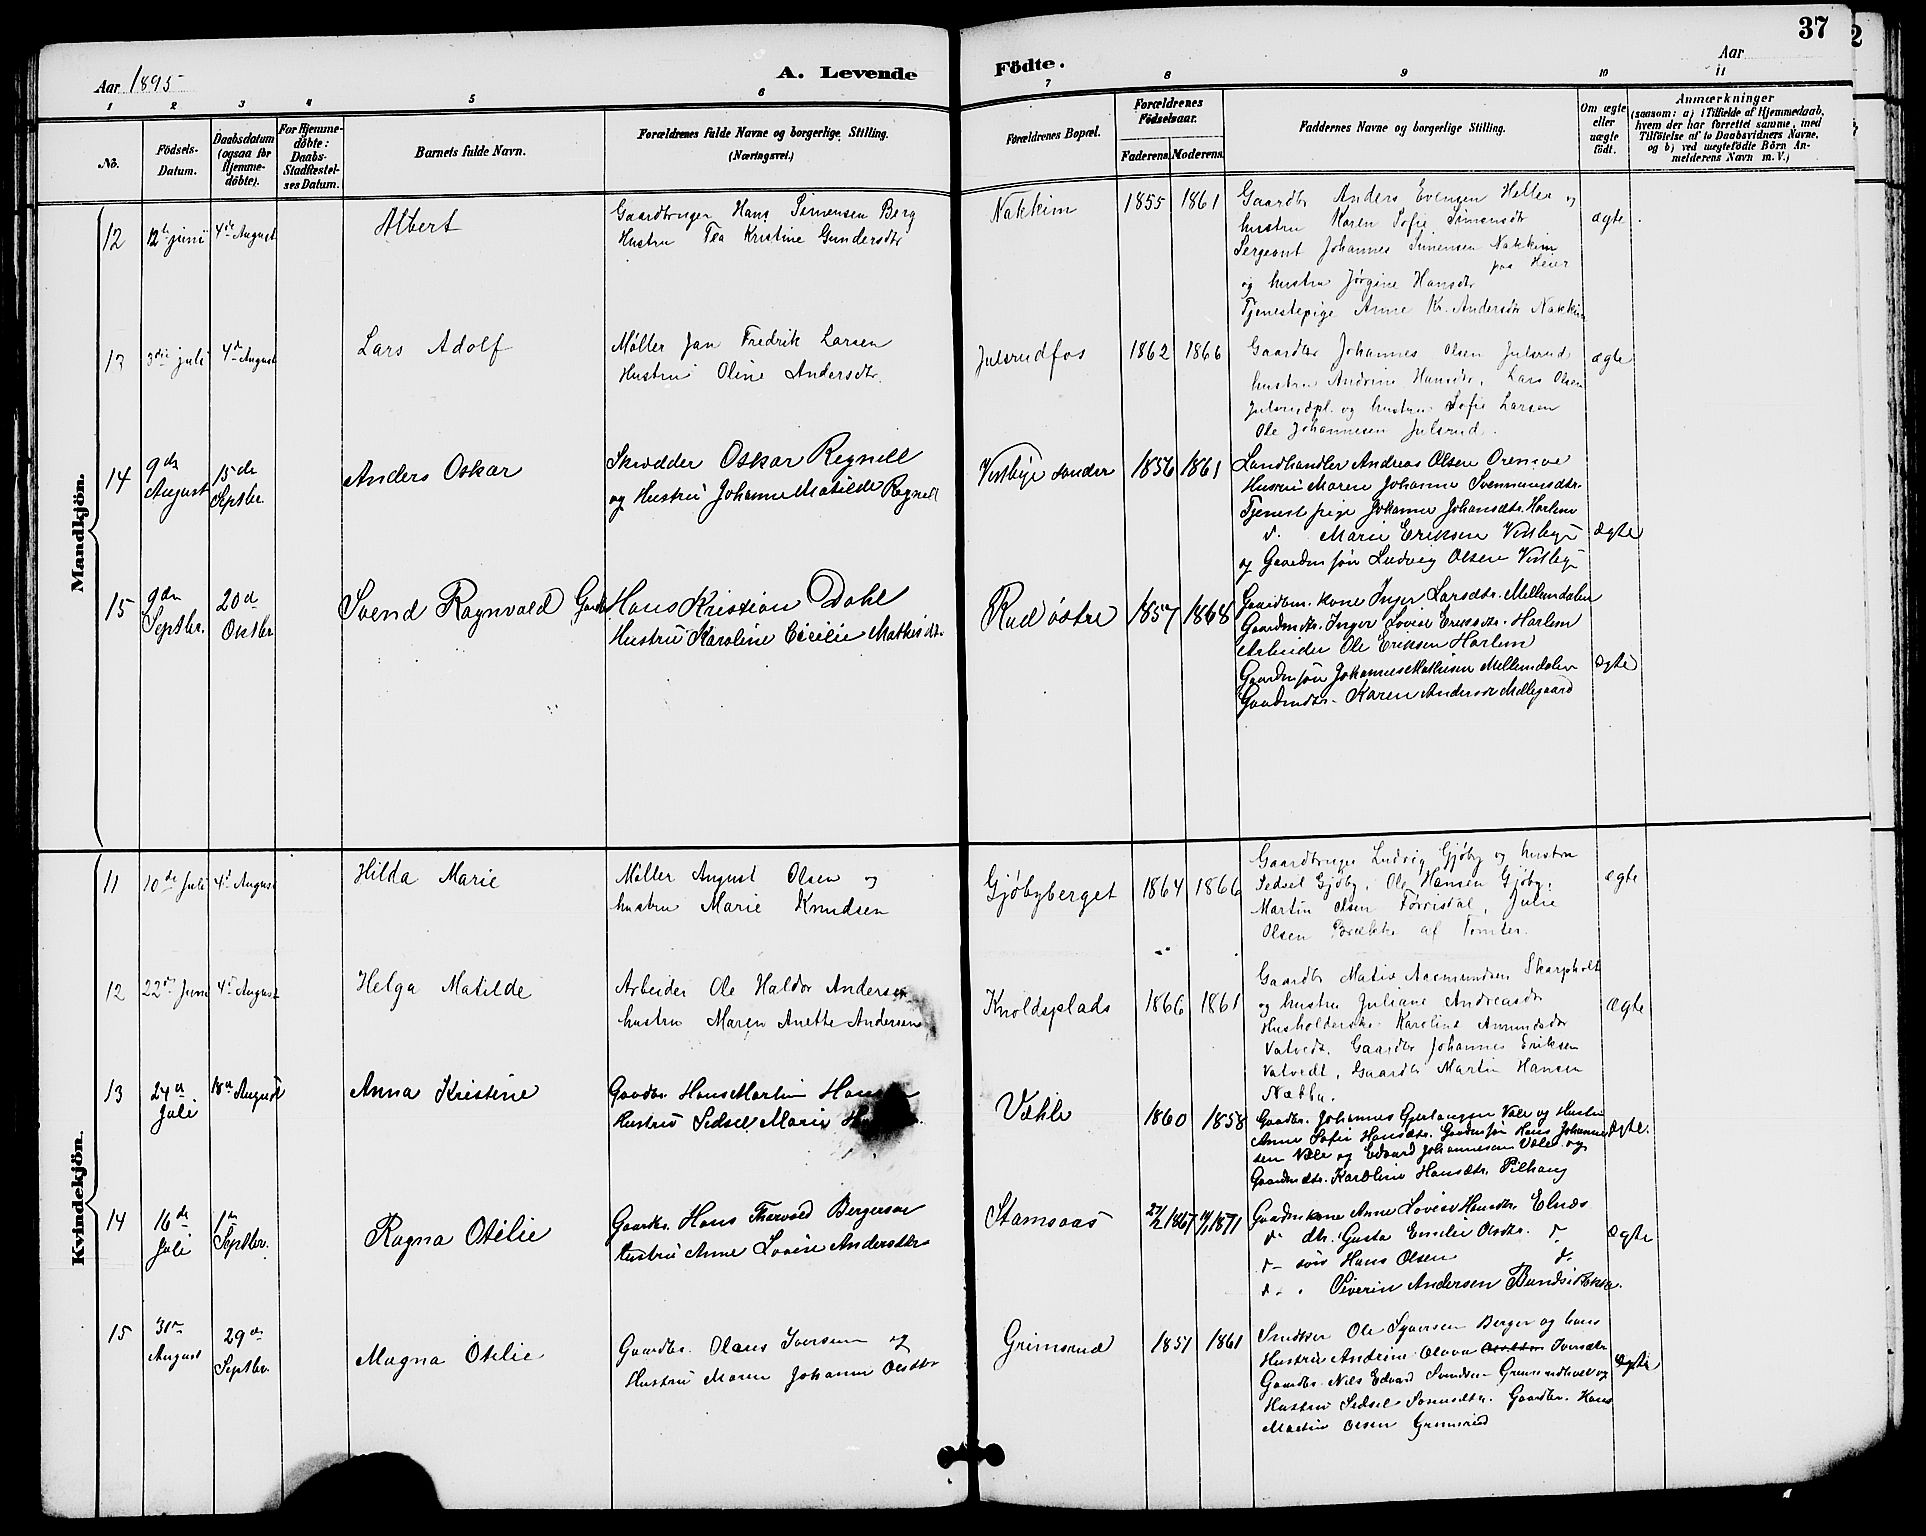 37
2
Aar 1895
A. Levende
Födte.
Aar
1 2 3 4 5 6 7 8 9 10 11
No.
Födsels-
Datum.
Daabsdatum
(ogsaa for
Hjemme-
döbte).
For Hjemme-
döbte:
Daabs-
Stadfæstel-
ses Datum.
Barnets fulde Navn.
Forældrenes fulde Navne og borgerlige Stilling.
(Næringsvei.)
Forældrenes Bopæl.
Forældrenes
Födselsaar.
Faderens. Moderens.
Faddernes Navne og borgerlige Stilling.
Om ægte
eller
uægte
födt.
Anmærkninger
(saasom: a) i Tilfælde af Hjemmedaab,
hvem der har forrettet samme, med
Tilföielse af to Daabsvidners Navne,
og b) ved uægtefödte Börn An-
melderens Navn m. V.)
Mandkjön.
12
12te juni
4de August
Albert
Gaardbruger Hans Simensen Berg
Hustru Tea Kristine Gundersdtr
Nakkim
1855 1861
Gaardbr Anders Evensen Heller og
hustru Karen Sofie Simensdtr
Sergeant Johannes Simensen Nakkim
og hustru Jørgine Hansdtr paa Heier
Tjenestepige Anne Kr. Andersdtr Nakkim
ægte
13
3die juli
4de August
Lars Adolf
Møller Jan Fredrik Larsen
Hustru Oline Andersdtr.
Julsrudfos
1862 1866
Gaardbr Johannes Olsen Julsrud
hustru Andrine Hansdtr. Lars Olsen
Julsrudpl. og hustru Sofie Larsen
Ole Johannesen Julsrud.
ægte
14
9de
August
15de
Septbr.
Anders Oskar
Skrædder Oskar Regnell
og Hustru Johanne Matilde Regnell
Vestbye søndre
1856 1861
Landhandler Andreas Olsen
Hustru Maren Johanne Svennumsdtr.
Tjenestpige Johanne Johansdtr. Harlem
d. Marie Eriksen Vestbye
og Gaardm søn Ludvig Olsen Vestbye
ægte
15
9de
Septbr.
20de
Oktbr
Svend Ragnvald
Gaardb. Hans Kristian Dahl
Hustru Karoline Cicilie Mathisdtr.
Rud østre
1857 1868
Gaardm. kone Inger Larsdtr. Mellemdalen
Gaardmdtr. Inger Lovise Eriksdtr. Harlem
Arbeider Ole Eriksen Harlem
Gaardm søn Johannes Mathisen Mellemdalen
Gaardmdtr. Karen Andersdtr Mellegaard
ægte
Kvindekjön.
11
10de Juli
4de August
Hilda Marie
Møller August Olsen og
hustru Marie Knudsen
Gjøbyberget
1864 1866
Gaardbruger Ludvig Gjøby og hustru
Sedsel Gjøby, Ole Hansen Gjøby,
Martin Olsen Førrisdal, Julie
Olsen Brække af Tomter.
ægte
12
22de Juni
4de August
Helga Matilde
Arbeider Ole Haldor Andersen
hustru Maren Anette Andersen
Knoldsplads
1866 1861
Gaardbr Matis Aasmundsen Skarpholt
og hustru Juliane Andreasdtr
Husholderske Karoline Amundsdtr
Vatvedt. Gaardbr Johannes Eriksen
Vatvedt, Gaardbr Martin Hansen
ægte
13
24de
Juli
18de August
Anna Kristine
Gaardbr. Hans Martin
Hustru Sedsel Marie
Vehle
1860 1858
Gaardbr. Johannes Gjerlaugsen Vale og Hustru
Anne Sofie Hansdtr. Gaardm søn Hans Johanne
sen Vale og Edvard Johannesen Vale og
Gaardmdtr. Karoline Hansdtr. Pilhaug
ægte.
14
16de
Juli
1ste
Septbr.
Ragna Otilie
Gaardbr. Hans Thorvald Bergersen
Hustru Anne Lovise Andersdtr
Stamsaas
27/2 1867 1871
Gaardm kone Anne Lovise Hansdtr. Elnæs
d- dtr. Gusta Emilie Olsdtr. d-
d- søn Hans Olsen d-
d- . Siverin Andersen
ægte
15
31te
August
29de
Septbr.
Magna Otilie
Gaardbr. Olaus Iversen og
Hustru Maren Johanne Olsdtr
Grimsrud
1857 1861
Snedker Ole Syversen Berger og hans
Hustru Andrine Olava Iversdtr
Gaardbr. Nils Edvard Svendsen Grimsrudhvel og
Hustru Sedsel Gaardbr. Hans
Martin Olsen Grimsrud
ægte